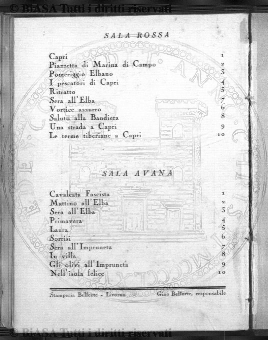 © BIASA Tutti i diritti riservati
SALA ROSSA
Capri 1
Piazzetta di Marina di Campo 2
Pomeriggio Elbano 3
I pescatori di Capri 4
Ritratto 5
Sera all'Elba 6
Vortice azzurro 7
Saluto alla Bandiera 8
Una strada a Capri 9
Le terme tiberiane a Capri 10
SALA AVANA
Cavalcata Fascista 1
Mattino all'Elba 2
Sera all'Elba 3
Primavera 4
Laura 5
Sorrisi 6
Sera all'Impruneta 7
In villa 8
Gli olivi all'Impruneta 9
Nell'isola felice 10
Stamperia Belforte - Livorno Gino Belforte, responsabile
© BIASA Tutti i diritti riservati